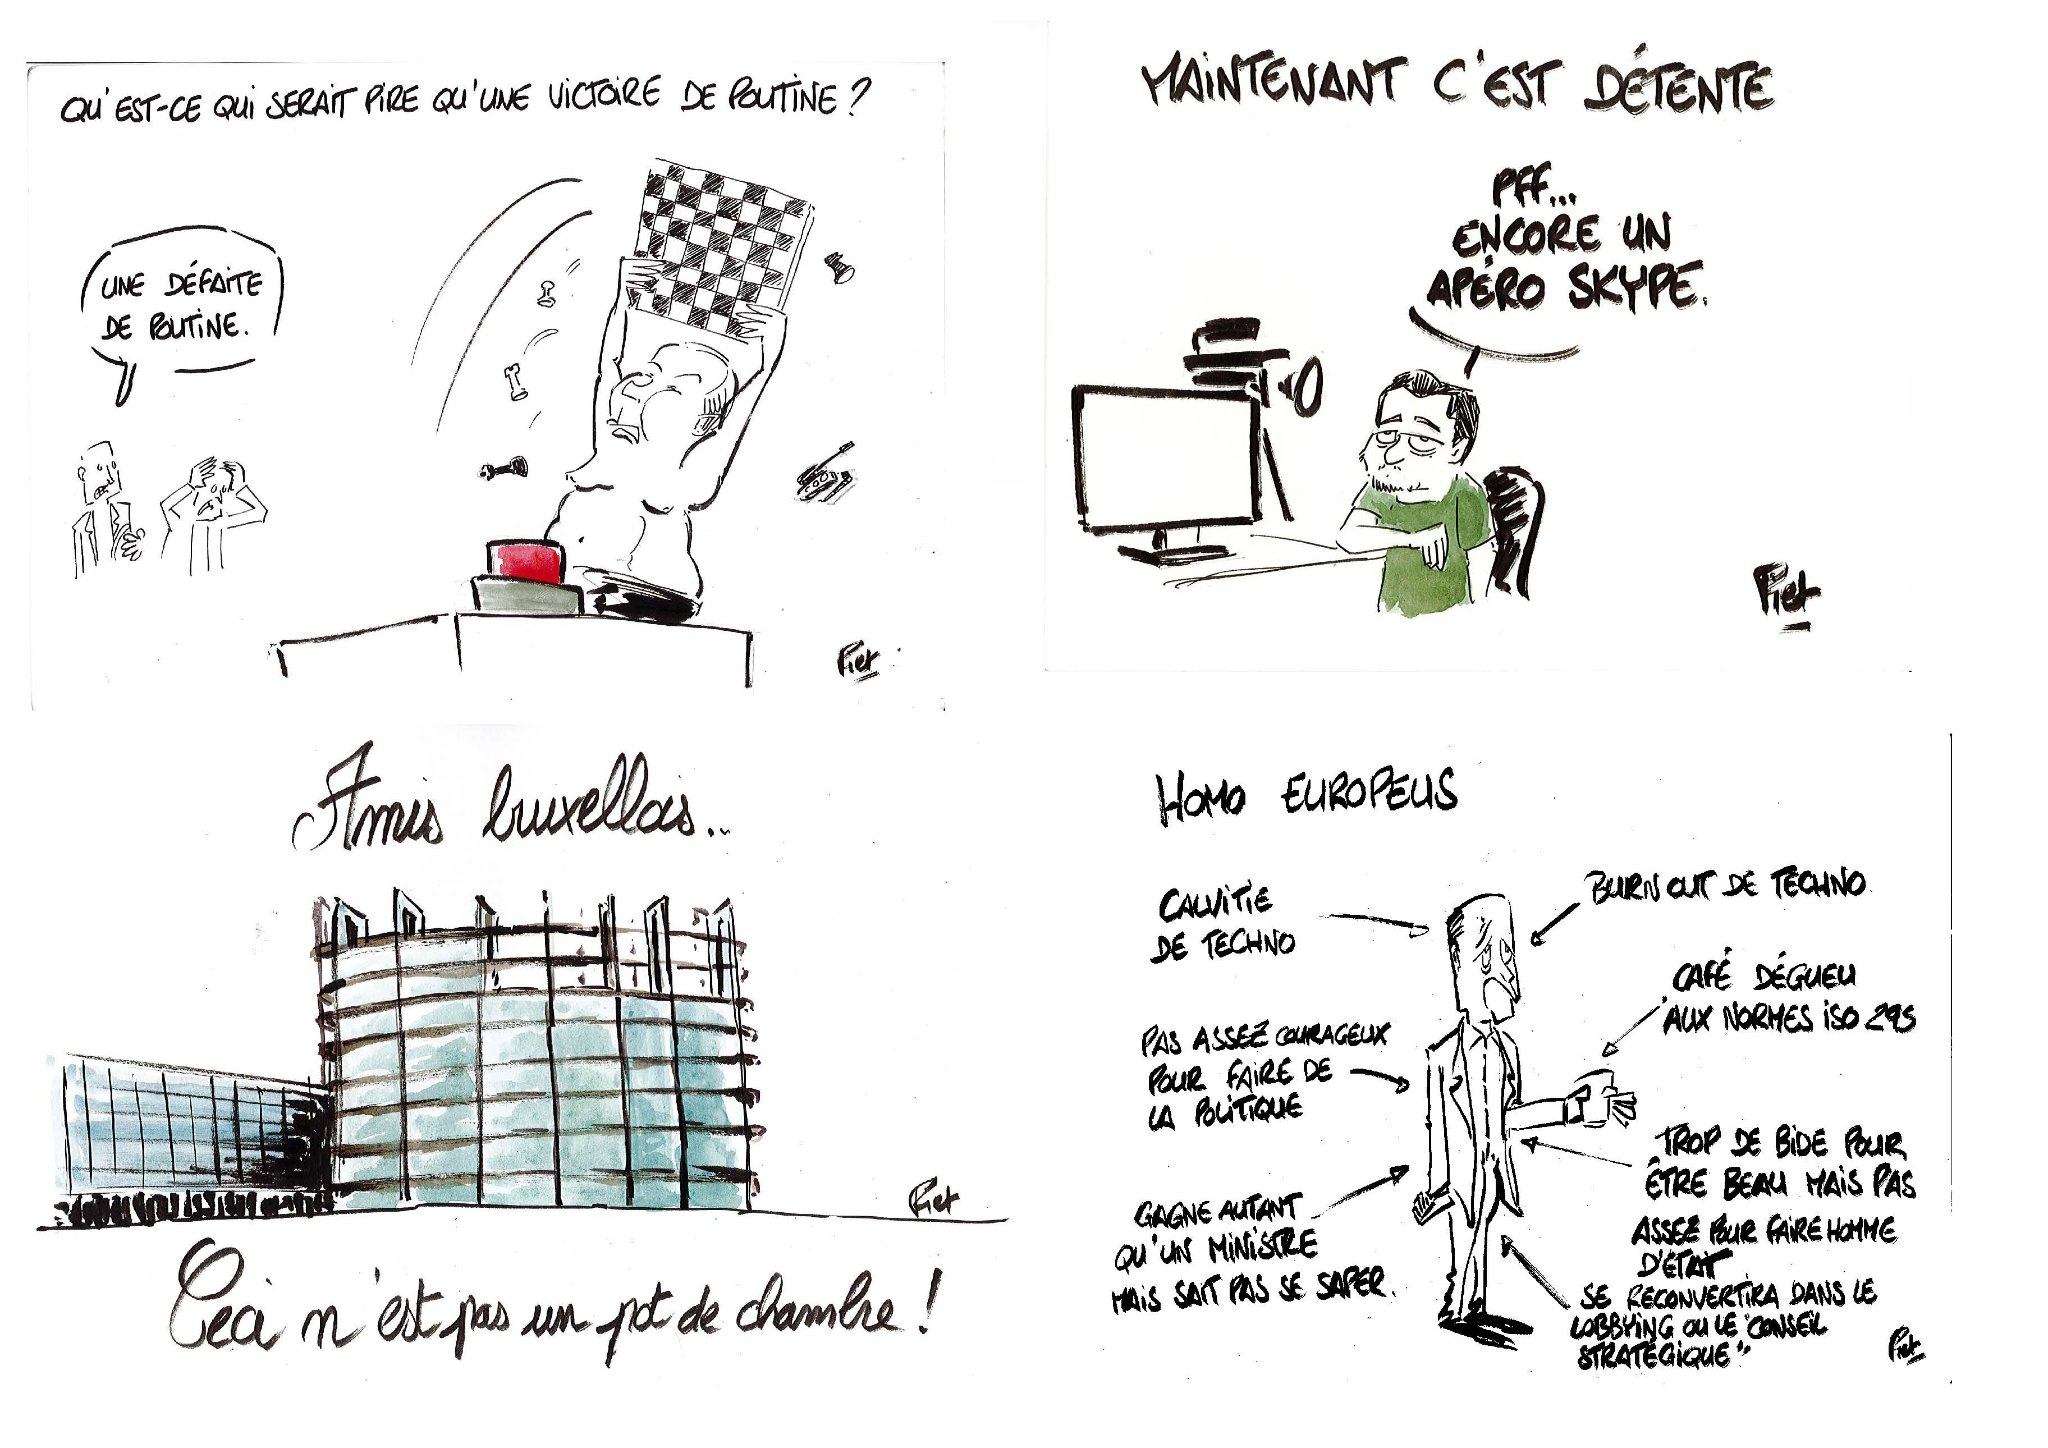 QU'EST-CE QUI SERAIT PIRE QU'UNE VICTOIRE DE POUTINE ?
UNE DÉFAITE
DE POUTINE.
Piet
MAINTENANT C'EST DÉTENTE
PFF...
ENCORE UN
APÉRO SKYPE.
Piet
Amis bruxellois..
Piet
Ceci n'est pas un pot de chambre !
HOMO EUROPEUS
CALVITIE
DE TECHNO
BURN OUT DE TECHNO
CAFÉ DÉGUEU
AUX NORMES ISO 295
PAS ASSEZ COURAGEUX
POUR FAIRE DE
LA POLITIQUE
TROP DE BIDE POUR
ÊTRE BEAU MAIS PAS
ASSEZ POUR FAIRE HOMME
D'ÉTAT
GAGNE AUTANT
QU'UN MINISTRE
MAIS SAIT PAS SE SAPER.
SE RECONVERTIRA DANS LE
LOBBYING OU LE "CONSEIL
STRATÉGIQUE"
Piet